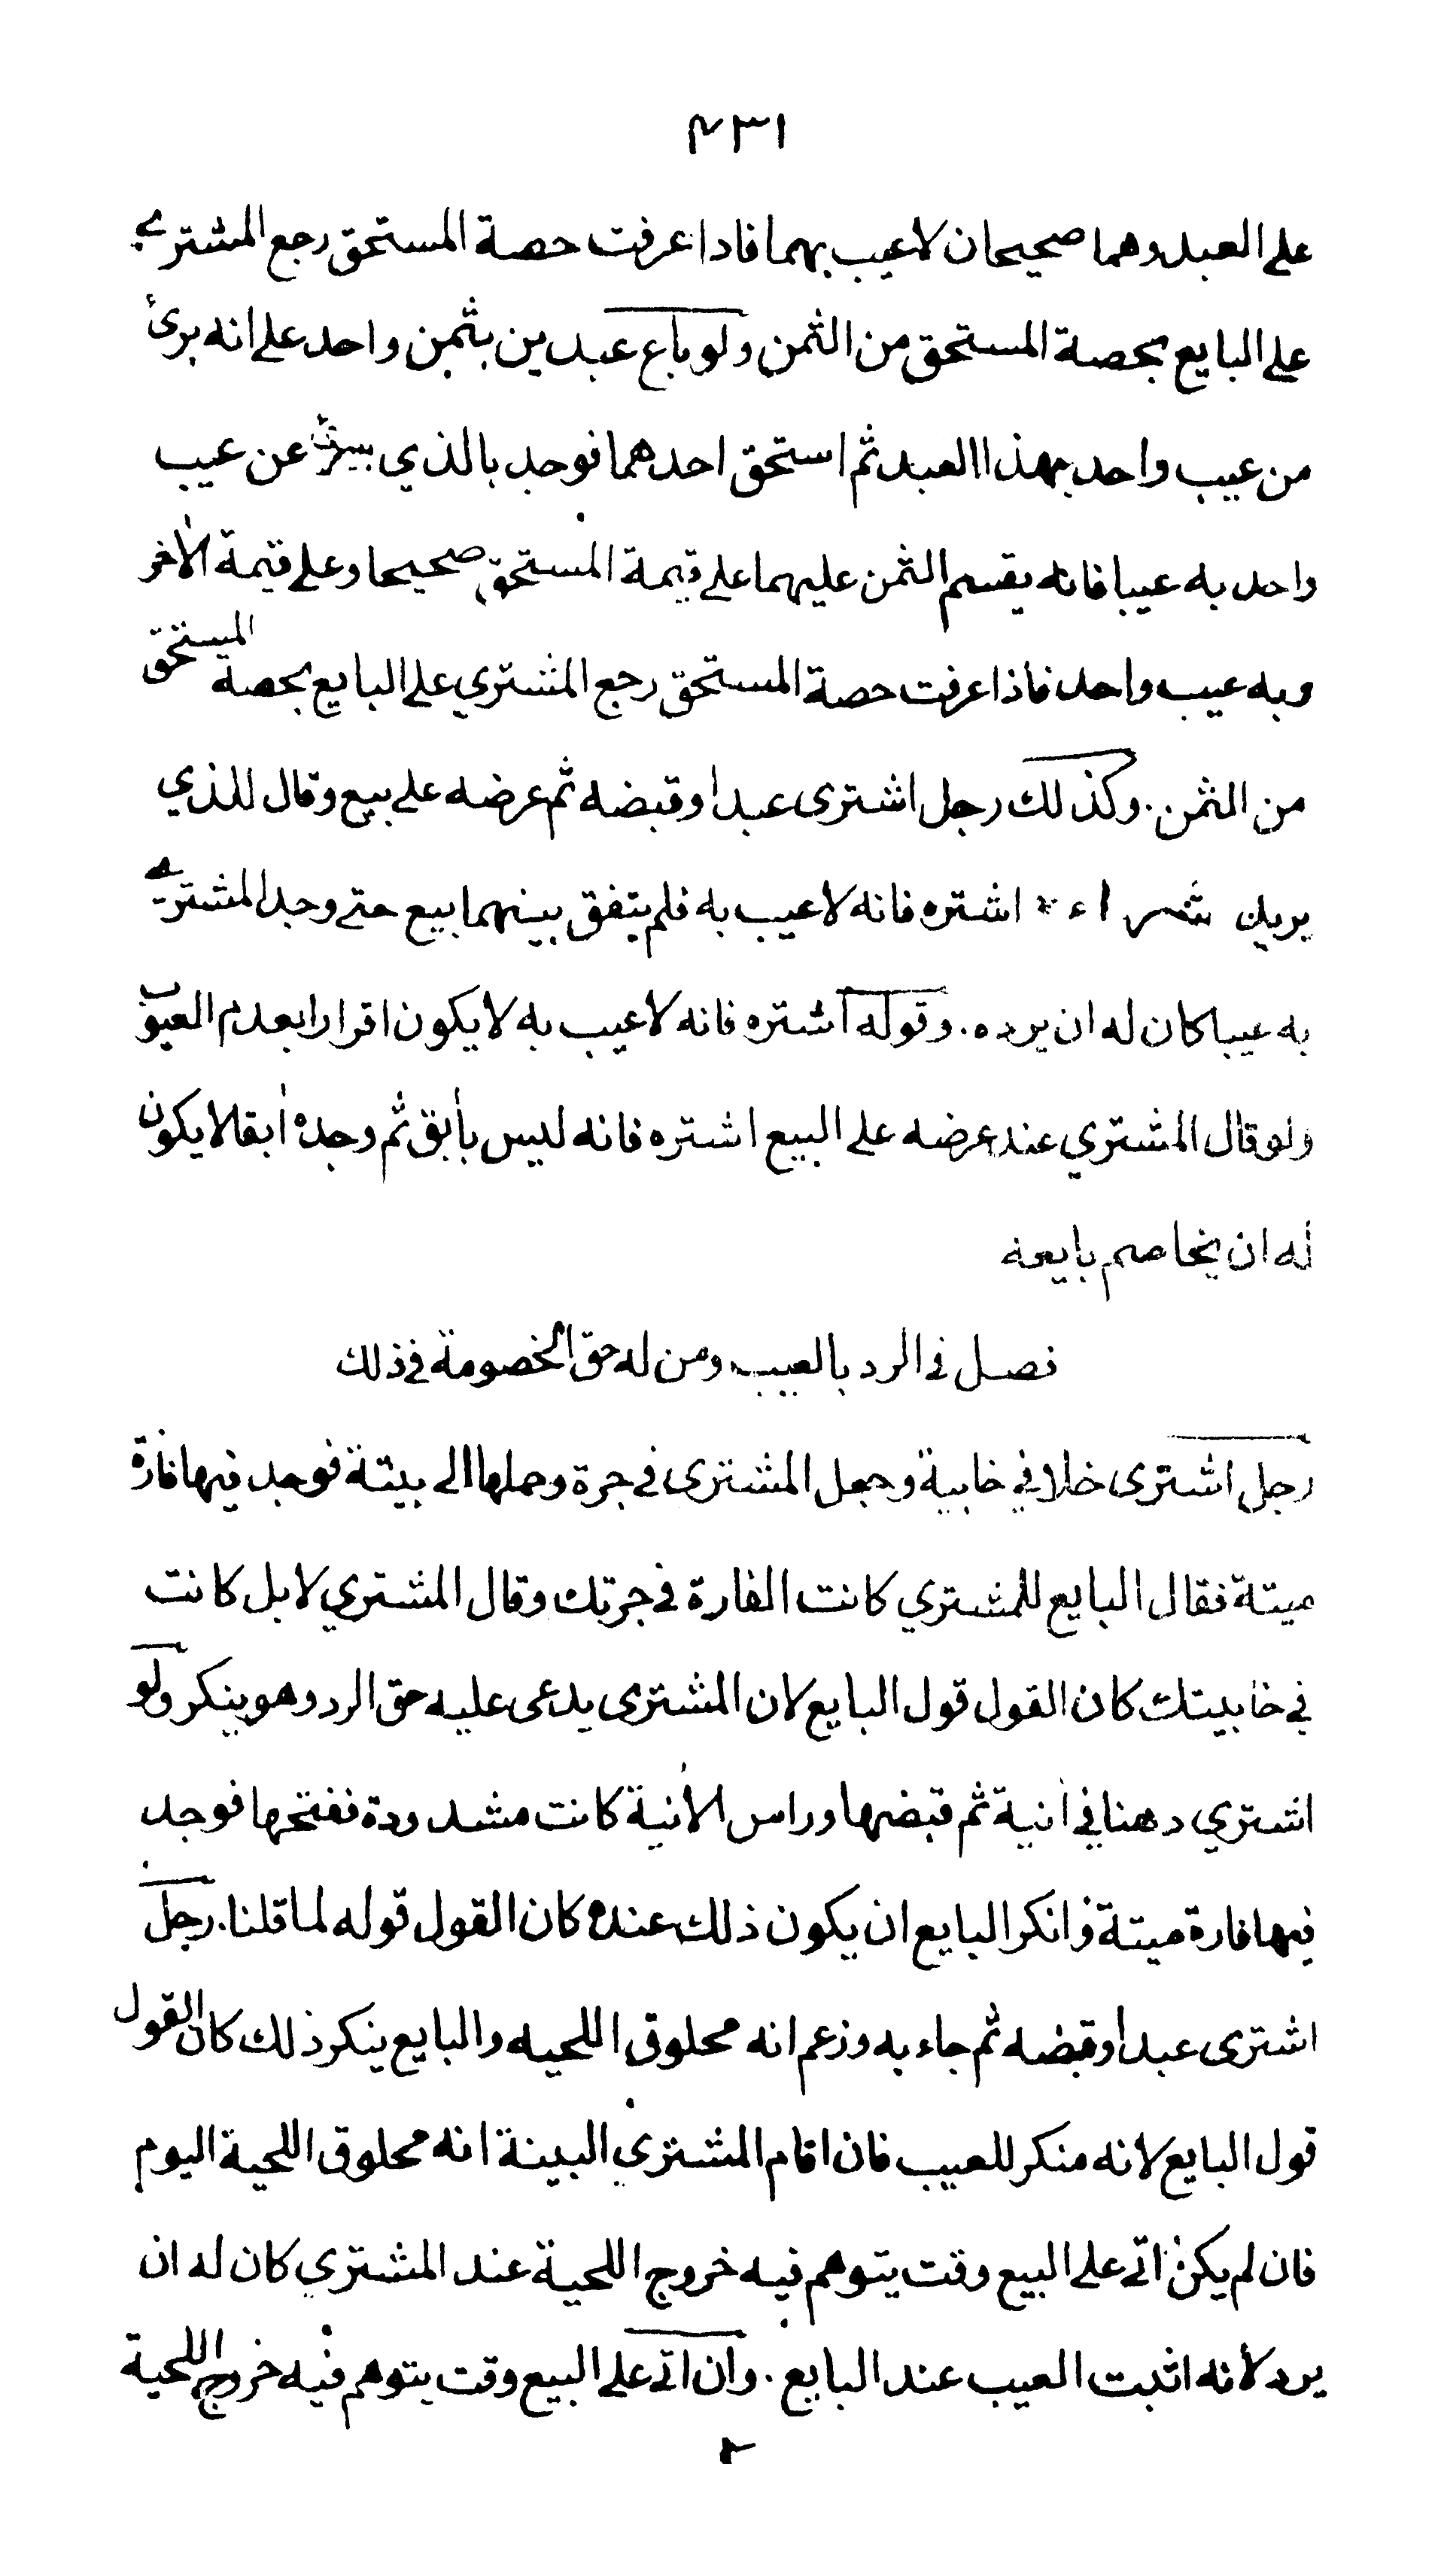 ١٣٢
على العبد وهما صحيحان لاعيب بهما فاداعرفت حصة المستحق رجع المشتري
على البايع بحصة المستحق من الثمن ولو باع عبدين بثمن واحد على انه برئ
من عيب واحد بهذا العبد ثم استحق احدهما فوجد بالذي عن عيب
واحد به عيبا فانه يقسم الثمن عليهما على قيمة المستحق صحيحا وعلى قيمة الأخر
وبه عيب واحد فاذا عرفت حصة المستحق رجع المشتري على البايع بحصة المستحق
من الثمن. وكذلك رجل اشترى عبدا وقبضه ثم عرضه على بيع وقال للذي
يريد شراءه اشتره فانه لاعيب به فلم يتفق بينهما بيع حتى وجد المشتري
به عيبا كان له ان يرده. وقوله اشتره فانه لاعيب به لايكون اقرارا بعدم العيوب
ولو قال المشتري عند عرضه على البيع اشتره فانه ليس بأبق ثم وجده أبقا لايكون
له ان يخاصم بايعه
فصل في الرد بالعيب ومن له حق الخصومة في ذلك
رجل اشترى خلا في خابية وجعل المشترى في جرة وحملها الى بيتة فوجد فيها فارة
ميتة فقال البايع للمشتري كانت الفارة في جرتك وقال المشتري لا بل كانت
في خابيتك كان القول قول البايع لان المشترى يدعى عليه حق الرد وهو ينكر ولو
اشتري دهنا في أنية ثم قبضها وراس الأنية كانت مشدودة ففتحها فوجد
فيها فارة ميتة وانكر البايع ان يكون ذلك عنده كان القول قوله لما قلنا. رجل
اشترى عبدا وقبضه ثم جاء به وزعم انه محلوق اللحيه والبايع ينكر ذلك كان القول
قول البايع لانه منكر للعيب فان اقام المشتري البينة انه محلوق اللحية اليوم
فان لم يكن اتى على البيع وقت يتوهم فيه خروج اللحية عند المشتري كان له ان
يرد لأنه اثبت العيب عند البايع. وان اتى على البيع وقت يتوهم فيه خروج اللحية